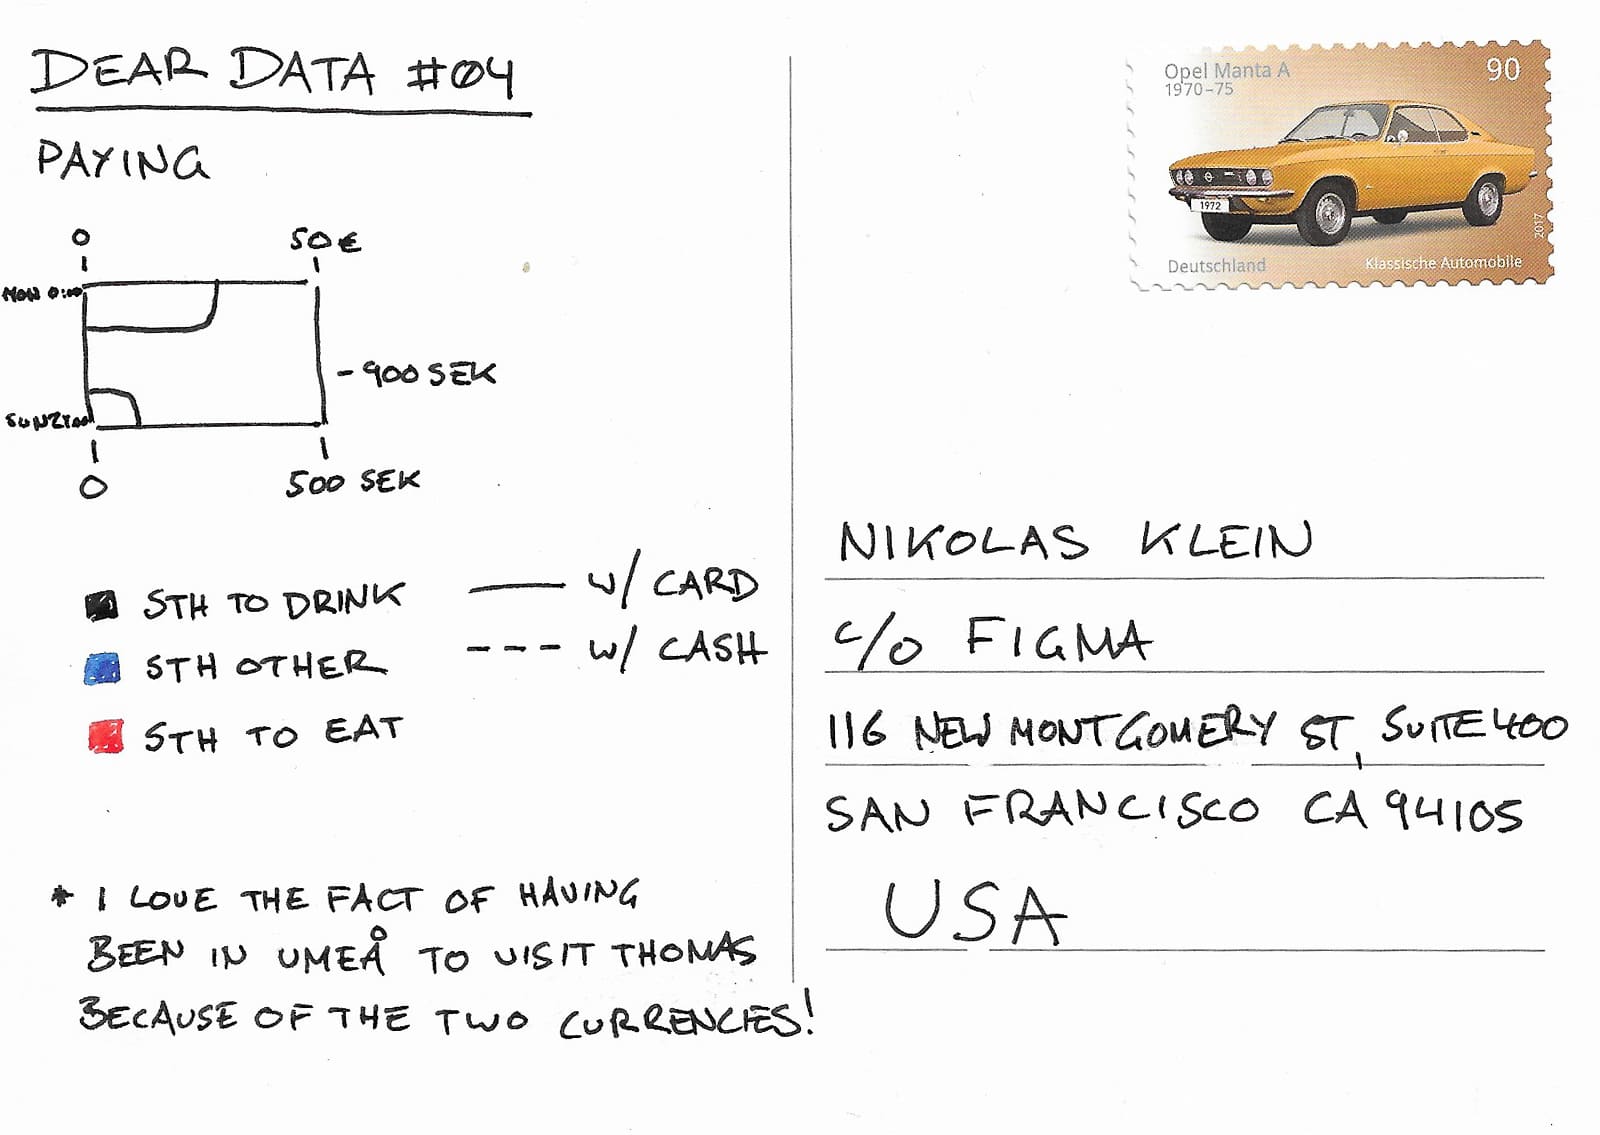 DEAR DATA #04
PAYING
0 50€
MON 0:00
- 900 SEK
0 500 SEK
STH TO DRINK
STH OTHER
STH TO EAT
W/ CARD
W/ CASH
* I LOVE THE FACT OF HAVING
BEEN IN UMEÅ TO VISIT THOMAS
BECAUSE OF THE TWO CURRENCIES!
Opel Manta A
1970–75
90
1972
2017
Deutschland
Klassische Automobile
NIKOLAS KLEIN
c/o FIGMA
116 NEW MONTGOMERY ST, SUITE 400
SAN FRANCISCO CA 94105
USA